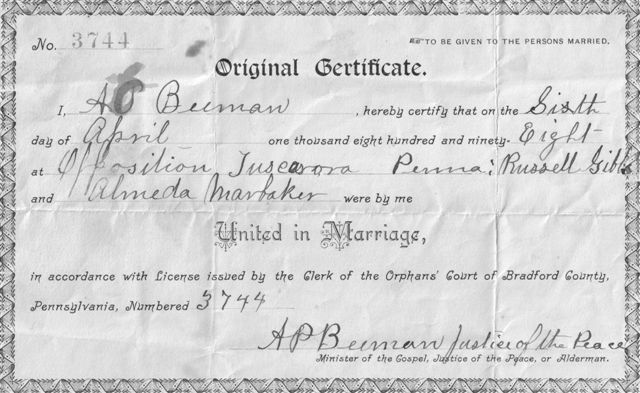 No. 3744 TO BE GIVEN TO THE PERSONS MARRIED.
Original Certificate.
I, A P Beeman, hereby certify that on the Sixth
day of April one thousand eight hundred and ninety- Eight
at Opposition Tuscarora Penna: Russell Gibbs
and Almeda Marbaker were by me
United in Marriage,
in accordance with License issued by the Clerk of the Orphans' Court of Bradford County,
Pennsylvania, Numbered 3744
A P Beeman Justice of the Peace
Minister of the Gospel, Justice of the Peace, or Alderman.